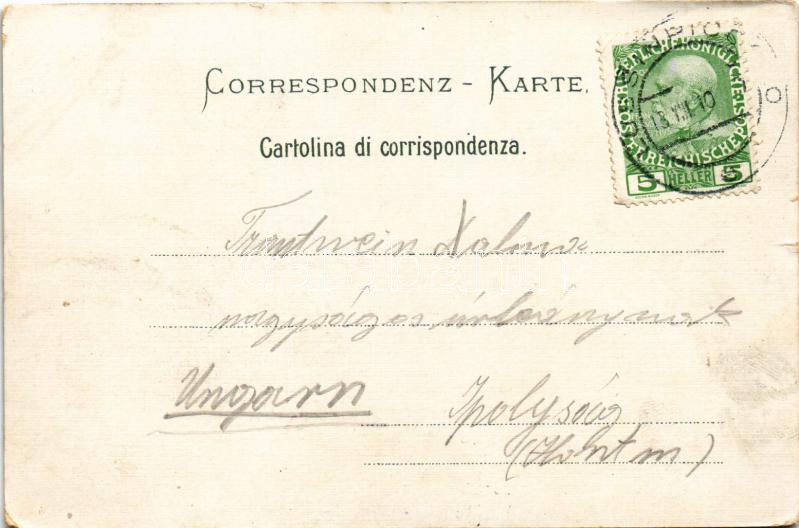 CORRESPONDENZ - KARTE.
Cartolina di corrispondenza.
KAISERLICHE KÖNIGLICHE ÖSTERREICHISCHE POST
5 HELLER 5
13.XII.10
Trautwein Kalma
nagyságos úrleánynak
Ungarn
Ipolyság
(Hont m)